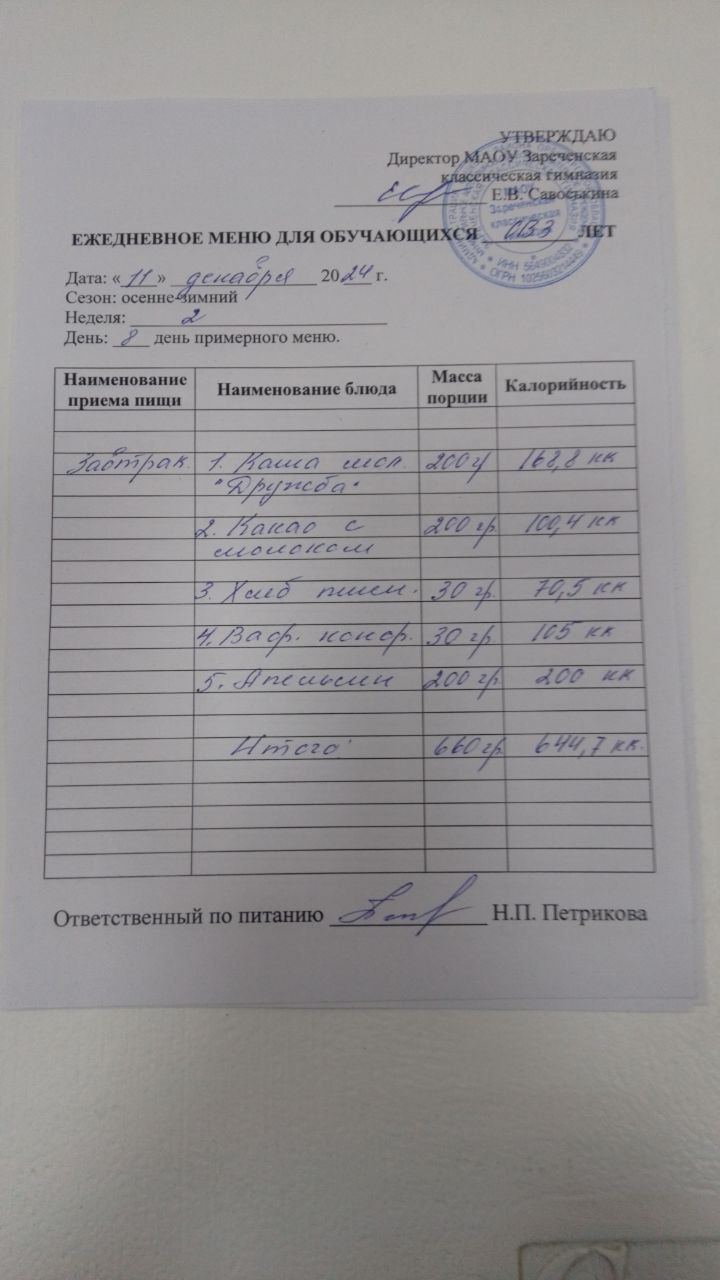 УТВЕРЖДАЮ
Директор МАОУ Зареченская
классическая гимназия
Е.В. Савоськина
ЕЖЕДНЕВНОЕ МЕНЮ ДЛЯ ОБУЧАЮЩИХСЯ ОВЗ ЛЕТ
Дата: «11» декабря 2024 г.
Сезон: осенне-зимний
Неделя: 2
День: 8 день примерного меню.
Наименование приема пищи Наименование блюда Масса порции Калорийность
Завтрак. 1. Каша мол. 200 гр 168,8 кк
"Дружба"
2. Какао с 200 гр. 100,4 кк
молоком
3. Хлеб пшен. 30 гр. 70,5 кк
4. Ваф. конф. 30 гр 105 кк
5. Апельсин 200 гр. 200 кк
Итого: 660 гр. 644,7 кк.
Ответственный по питанию Н.П. Петрикова